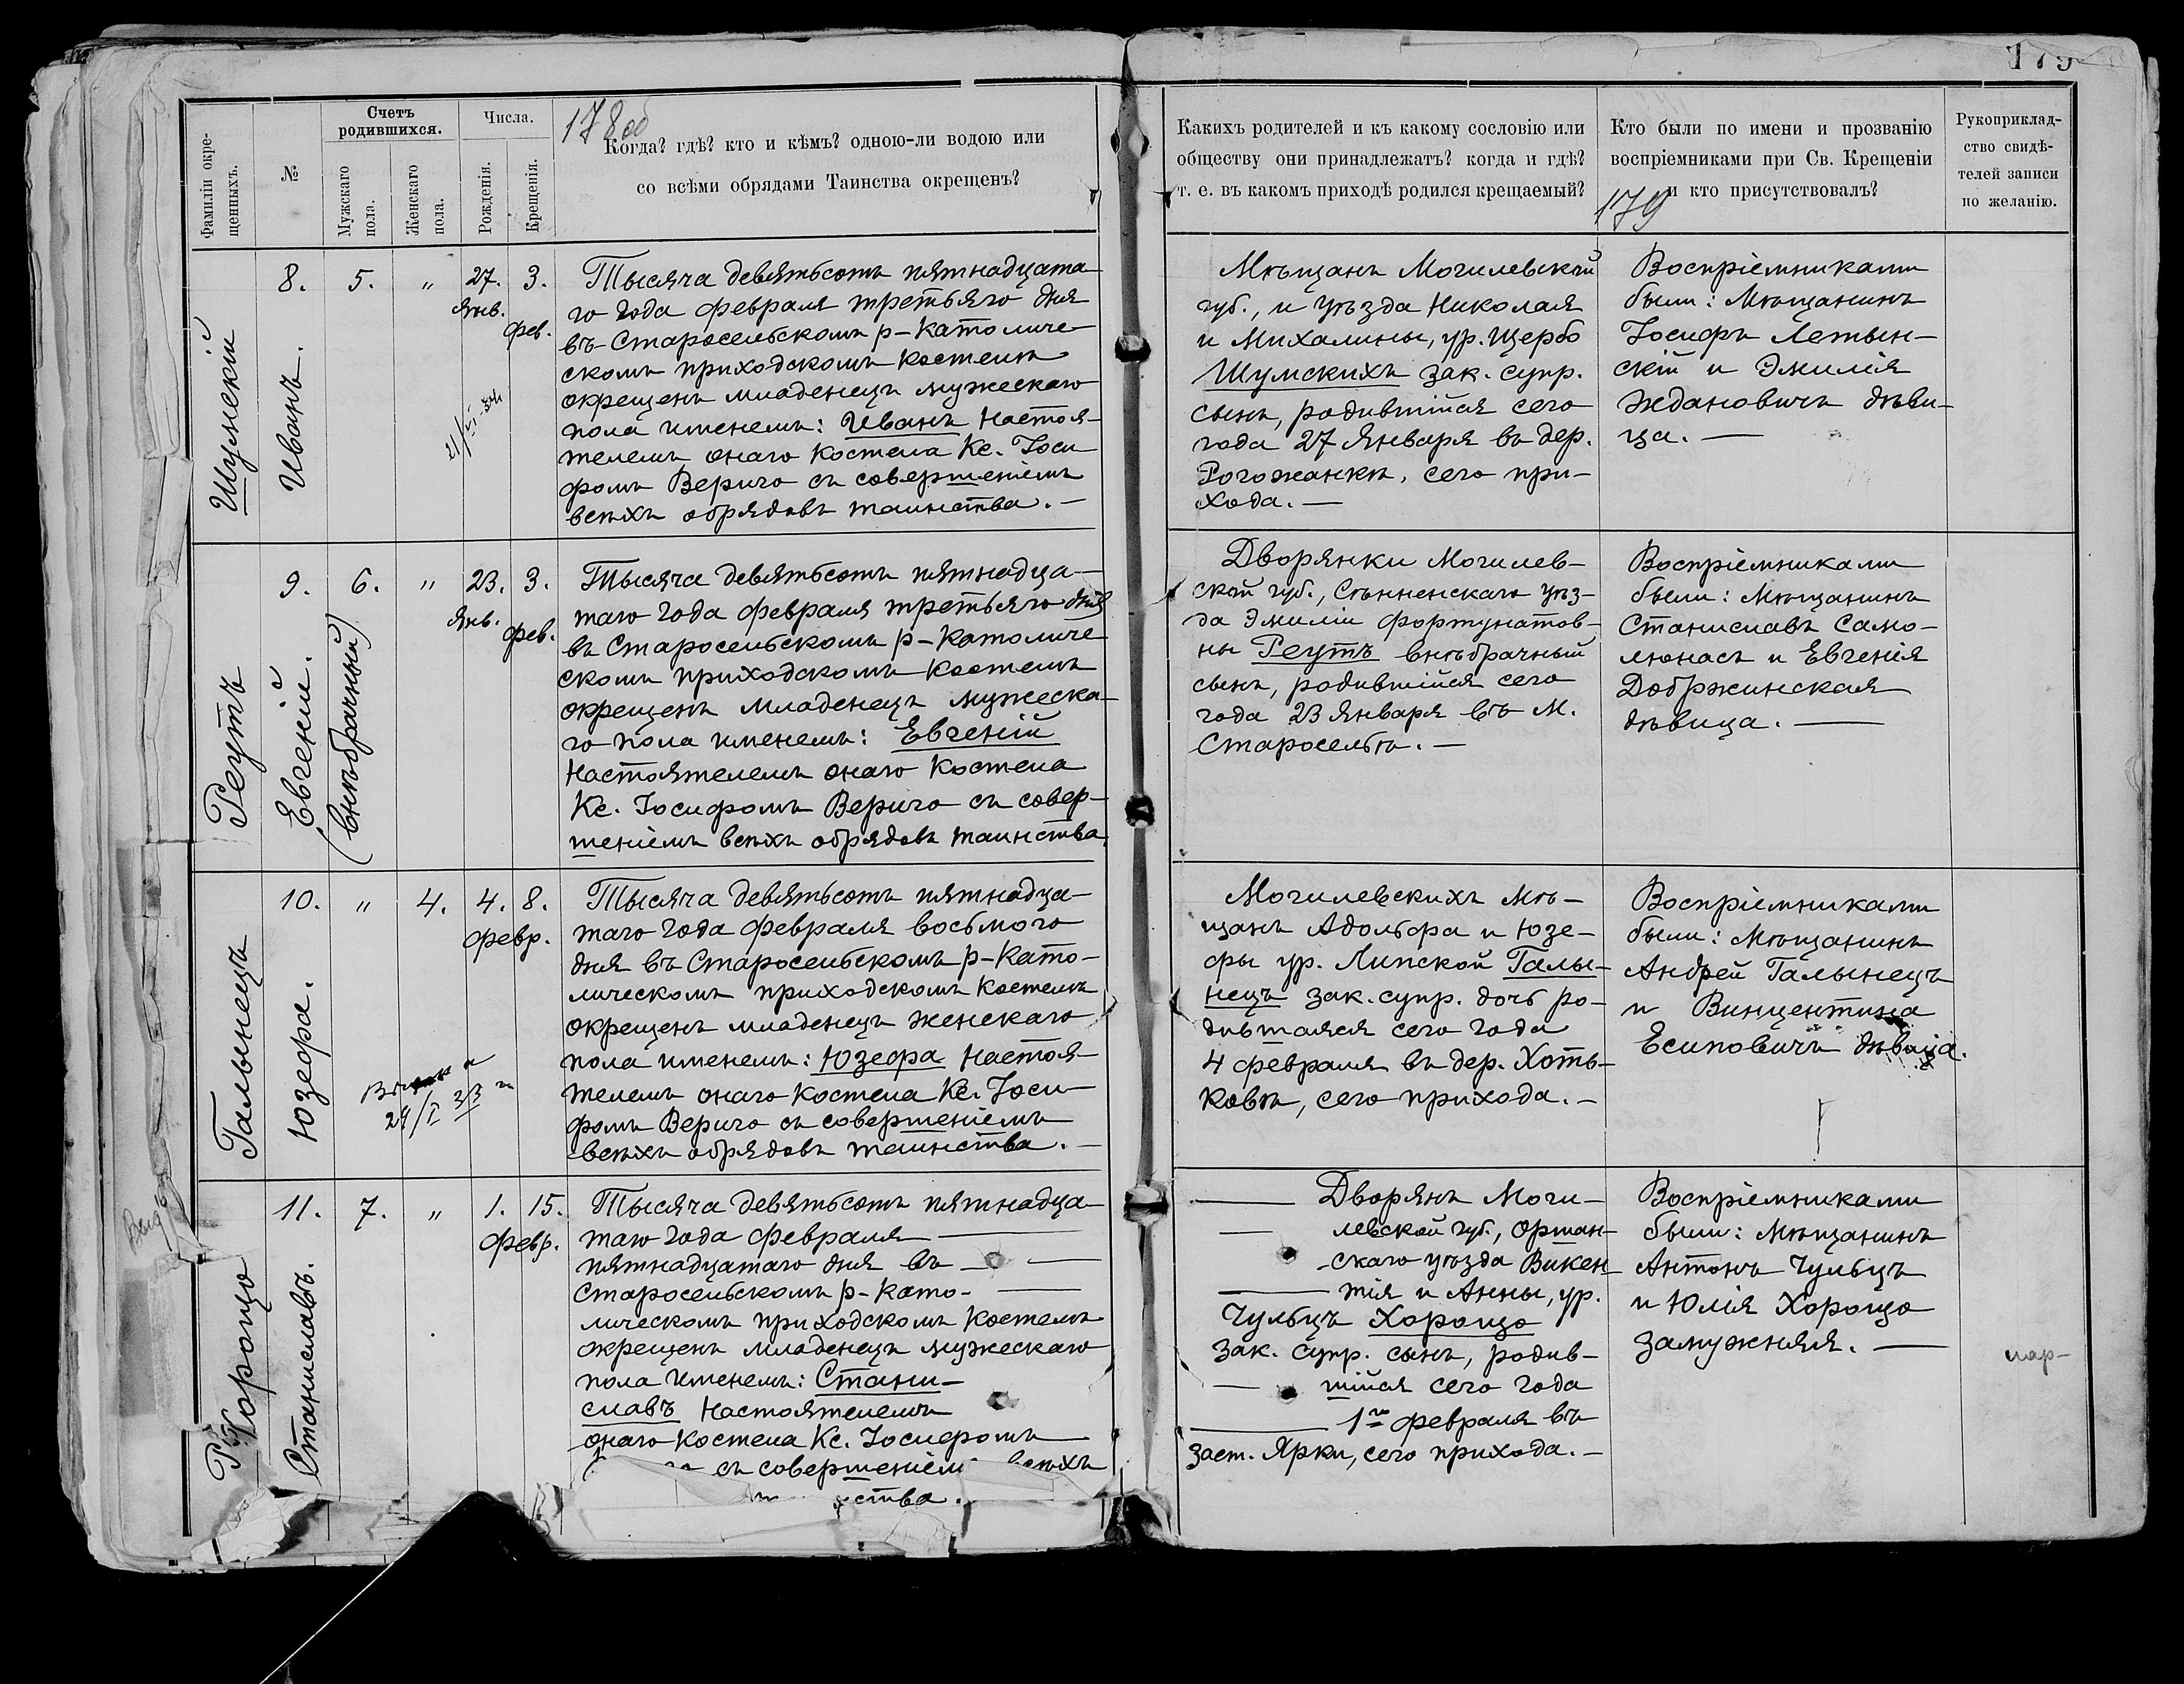 178об
179
Фамиліи окре-
щенныхъ.
№
Счетъ
родившихся.
Мужскаго
пола.
Женскаго
пола.
Числа.
Рожденія.
Крещенія.
Когда? гдѣ? кто и кѣмъ? одною-ли водою или
со всѣми обрядами Таинства окрещенъ?
Какихъ родителей и къ какому сословію или
обществу они принадлежатъ? когда и гдѣ?
т. е. въ какомъ приходѣ родился крещаемый?
Кто были по имени и прозванію
воспріемниками при Св. Крещеніи
и кто присутствовалъ?
179
Рукоприклад-
ство свидѣ-
телей записи
по желанію.
Шумскій
Иванъ.
8. 5. " 27. 3.
Янв.
Фев.
Тысяча девятьсотъ пятнадцата-
го года февраля третьяго дня
въ Старосельскомъ р-католиче-
скомъ приходскомъ костелѣ
окрещенъ младенецъ мужескаго
пола именемъ: Иванъ Настоя-
телемъ онаго костела Кс. Іоси
фомъ Верыго съ совершеніемъ
всѣхъ обрядовъ таинства. —
Мѣщанъ Могилевской
губ., и уѣзда Николая
и Михалины, ур. Щербо
Шумскихъ зак. супр.
сынъ, родившійся сего
года 27 Января въ дер.
Рогожанкѣ, сего при-
хода. —
Воспріемниками
были: Мѣщанинъ
Іосифъ Летын-
скій и Эмилія
Ждановичъ дѣви-
ца. —
Реутъ
Евгеній.
(внѣбрачный)
9. 6. " 23. 3.
Янв.
Фев.
Тысяча девятьсотъ пятнадца-
таго года февраля третьяго дня
въ Старосельскомъ р-католиче
скомъ приходскомъ костелѣ
окрещенъ младенецъ мужеска-
го пола именемъ: Евгеній
Настоятелемъ онаго костела
Кс. Іосифомъ Верыго съ совер-
шеніемъ всѣхъ обрядовъ таинства.
Дворянки Могилев-
ской губ., Сѣнненскаго уѣз-
да Эмиліи Фортунатов-
ны Реутъ внѣбрачный
сынъ, родившійся сего
года 23 Января въ м.
Старосельѣ. —
Воспріемниками
были: Мѣщанинъ
Станиславъ Само-
люнасъ и Евгенія
Добржинская
дѣвица. —
Галынецъ
Юзефа.
10. " 4. 4. 8.
Февр.
Тысяча девятьсотъ пятнадца-
таго года февраля восьмого
дня въ Старосельскомъ р-като-
лическомъ приходскомъ костелѣ
окрещенъ младенецъ женскаго
пола именемъ: Юзефа Настоя-
телемъ онаго костела Кс. Іоси-
фомъ Верыго съ совершеніемъ
всѣхъ обрядовъ таинства. —
Могилевскихъ мѣ-
щанъ Адольфа и Юзе-
фы ур. Липской Галы-
нецъ зак. супр. дочь ро-
дившаяся сего года
4 февраля въ дер. Хоть-
ковѣ, сего прихода. —
Воспріемниками
были: Мѣщанинъ
Андрей Галынецъ
и Винцентина
Есиповичъ дѣвица.
Хорощо
Станиславъ.
11. 7. " 1. 15.
Февр.
Тысяча девятьсотъ пятнадца-
таго года февраля
пятнадцатаго дня въ
Старосельскомъ р-като-
лическомъ приходскомъ костелѣ
окрещенъ младенецъ мужескаго
пола именемъ: Стани-
славъ Настоятелемъ
онаго костела Кс. Іосифомъ
съ совершеніемъ всѣхъ
ства.
Дворянъ Моги-
левской губ., Оршан-
скаго уѣзда Викен-
тія и Анны, ур.
Чульцъ Хорощо
зак. супр. сынъ, родив-
шійся сего года
1го февраля въ
заст. Ярки, сего прихода. —
Воспріемниками
были: Мѣщанинъ
Антонъ Чульцъ
и Юлія Хорощо
замужняя. —